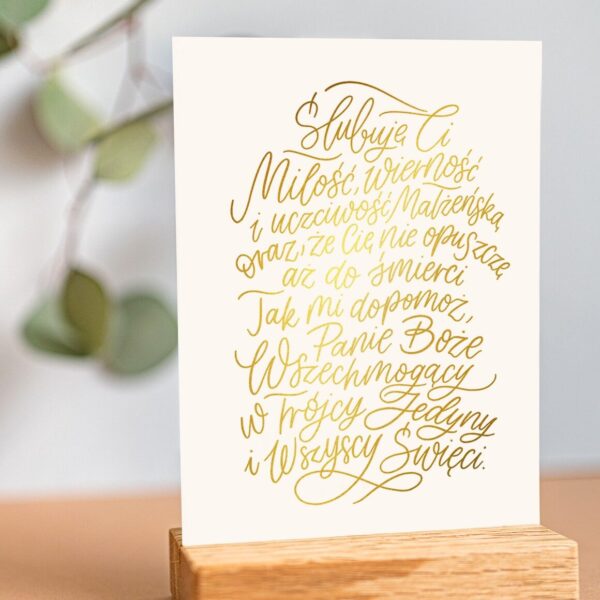 Ślubuję Ci
Miłość, wierność
i uczciwość Małżeńską
oraz, że Cię nie opuszczę
aż do śmierci
Tak mi dopomóż,
Panie Boże
Wszechmogący
w Trójcy Jedyny
i Wszyscy Święci.